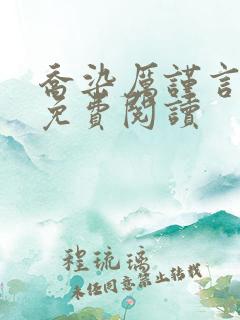 喬染厲謹言
免費閱讀
程琉璃
未经同意禁止转载